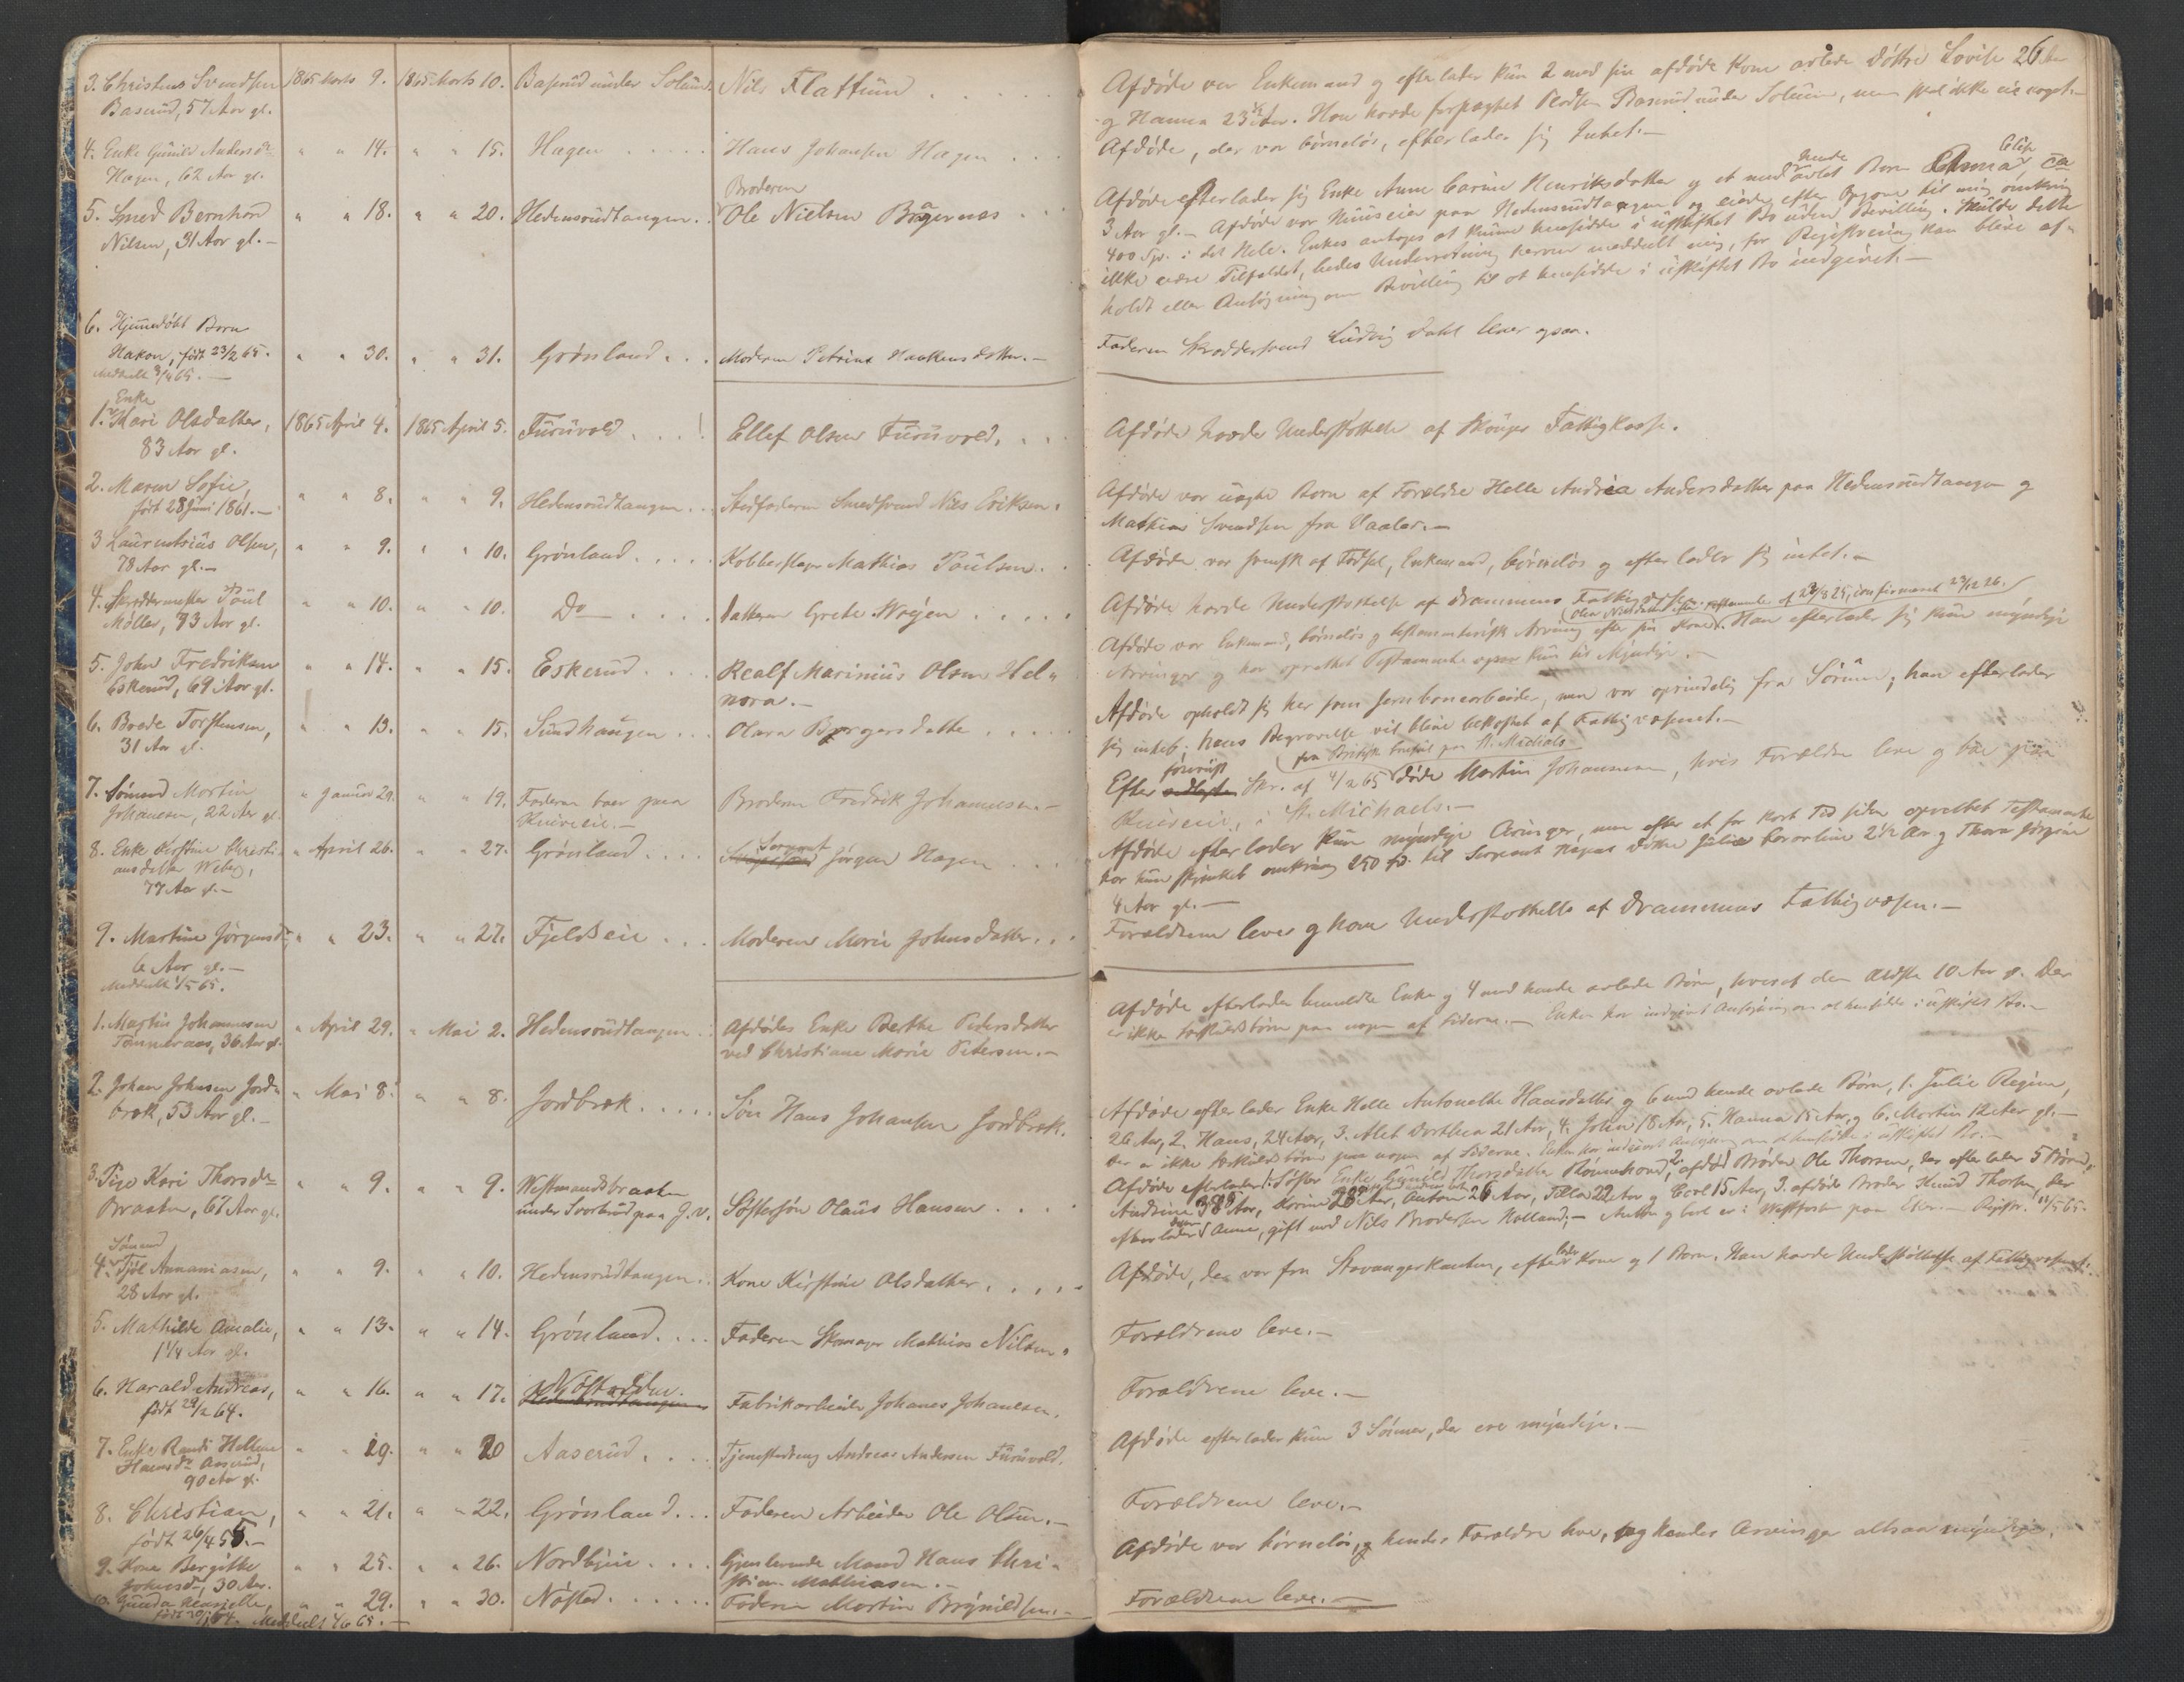 3. Christens Svendsen 1865 Marts 9. 1865 Marts 10. Baserud under Solum. Nils Flattum
Baserud, 57 Aar gl.
4. Enke Gunild Andersdr " " 14. " " 15. Hagen Hans Johansen Hagen
Hagen, 62 Aar gl.
Broderen
5. Smed Bernhard " " 18. " " 20. Hedensrudtangen Ole Nielsen Bragernæs
Nilsen, 31 Aar gl.
6. Hjemmedøbt Barn
Hakon, født 23/2 65. " " 30. " " 31. Grønland Moderen Petrine Haakensdatter.
Meddeelt 3/4 65.
Enke
1. Kari Olsdatter, 1865 April 4. 1865 April 5. Furuvold Ellef Olsen Furuvold.
83 Aar gl.
2. Maren Sofie, " " 8. " " 9. Hedensrudtangen Stedfaderen Smedsvend Nils Eriksen.
født 28 Juni 1861.
3 Laurentsius Olsen, " " 9. " " 10. Grønland Kobberslager Mathias Poulsen.
78 Aar gl.
4. Skræddermester Poul " " 10. " " 10. Do Datteren Grethe
Møller, 73 Aar gl.
5. John Fredriksen " " 14. " " 15. Eskerud Realf Marinius Olsen Hel-
Eskerud, 69 Aar gl. nora.
6. Brede Torstensen, " " 13. " " 15. Sundhaugen Olava Børgersdatter
31 Aar gl.
7. Sømand Martin " Januar 29. " " 19. Faderen boer paa Broderen Fredrik Johannesen.
Johannesen, 22 Aar gl.
8. Enke Kirstine Christi- " April 26. " " 27. Grønland Sergeant Jørgen Hagen
ansdatter Weberg,
77 Aar gl.
9. Martine Jørgensdr, " " 23. " " 27. Fjeldseie Moderen Marie Johnsdatter
6 Aar gl.
Meddeelt 1/5 65.
1. Martin Johannesen " April 29. " Mai 2. Hedensrudtangen Afdødes Enke Berthe Pedersdatter
Tømmeraas, 36 Aar gl. ved Christiane Marie Petersen.
2. Johan Johnsen Jord- " Mai 8. " " 8. Jordbræk Søn Hans Johansen Jordbræk.
bræk, 53 Aar gl.
3. Pige Kari Thorsdr " " 9. " " 9. Westmandsbraaten Søstersøn Olaus Hansen
Braaten, 67 Aar gl. under
Sømand
4. Tjøl Annaniasen, " " 9. " " 10. Hedensrudtangen Kone Kirstine Olsdatter
28 Aar gl.
5. Mathilde Amalie, " " 13. " " 14. Grønland Faderen Skomager Mathias Nilsen.
1 1/4 Aar gl.
6. Harald Andreas, " " 16. " " 17. Nøstodden. Fabrikarbeider Johanes Johanesen.
født 29/2 64.
7. Enke Randi Helene " " 19. " " 20 Aaserud Tjenestedreng Andreas Andersen Furuvold.
Hansdr Aaserud,
90 Aar gl.
8. Christian, " " 21. " " 22. Grønland Faderen Arbeider Ole Olsen.
født 26/4 55.
9. Kone Bergithe " " 25. " " 26. Nordbyeie Gjenlevende Mand Hans Chri-
Johnsdr, 30 Aar. stian Mathiasen.
10. Gunda Henriette, " " 29. " " 30. Nøsted Faderen Martin Brynildsen.
Meddeelt 1/6 65.
Afdøde var Enkemand og efterlader kun 2 med sin afdøde Kone avlede Døttre Lovise 26 Aar
og Hanna 23 1/2 Aar. Han havde forpagtet Pladsen Baserud under Solum, men skal ikke eie noget.
Afdøde, der var børneløs, efterlader sig Intet.
Afdøde efterlader sig Enke Anne Karine Henriksdatter og et med hende avlet Barn Anna Elise, ca
3 Aar gl. Afdøde var Huuseier paa Hedensrudtangen og eiede efter Opgave til mig omkring
400 Spd. i det Hele. Enken antages at kunne hensidde i uskiftet Bo uden Bevilling. Skulde dette
ikke være Tilfældet, bedes Underretning herom meddeelt mig, for Registrering kan blive af-
holdt eller Ansøgning om Bevilling til at hensidde i uskiftet Bo indgivet.
Faderen Skræddersvend Ludvig Dahl lever ogsaa.
Afdøde havde Understøttelse af Skouger Fattigkasse.
Afdøde var uægte Barn af Forældre Helle Andrea Andersdatter paa Hedensrudtangen og
Mathias Svendsen fra Vaaler.
Afdøde var svensk af Fødsel, Enkemand, børneløs og efterlader sig intet.
Afdøde havde Understøttelse af Drammens Fattigvæsen.
Afdøde var Enkemand, børneløs og testamentarisk Arving efter sin Kone. Han efterlader sig kun myndige
Arvinger og har oprettet Testamente ogsaa kun til Myndige.
Afdøde opholdt sig her som Jernbanearbeider, men var oprindelig fra Sørum; han efterlader
sig intet; hans Begravelse vil blive bekostet af Fattigvæsenet.
fra Britisk Consul paa St. Michaels
Efter forevist Skr. af 4/2 65 døde Martin Johannesen, hvis Forældre leve og boe paa
i St. Michaels.
Afdøde efterlader kun myndige Arvinger, men efter et for kort Tid siden oprettet Testamente
har hun skjenket omkring 250 Spd. til Sergeant Hagens Døttre Julie Caroline 2 1/2 Aar og Thora Jørgine
4 Aar gl.
Forældrene leve og have Understøttelse af Drammens Fattigvæsen.
Afdøde efterlader bemeldte Enke og 4 med hende avlede Børn, hvoraf den Ældste 10 Aar gl. Der
er ikke Særkuldsbørn paa nogen af Siderne. Enken har indgivet Ansøgning om at hensidde i uskiftet Bo.
Afdøde efterlader Enke Helle Antonette Hansdatter og 6 med hende avlede Børn, 1. Julie Regine,
26 Aar, 2. Hans, 24 Aar, 3. Alet Dorthea 21 Aar, 4. Johan 18 Aar, 5. Hanna 15 Aar, og 6. Martin 12 Aar gl.
Der er ikke Særkuldsbørn paa nogen af Siderne. Enken har indgivet Ansøgning om at hensidde i uskiftet Bo.
Afdøde efterlader 1. Søster Enke Gunild Thorsdatter 2. afdød Broder Ole Thorsen, der efterlader 5 Børn,
Andrine 38 Aar, Karine 28 Aar, Anton 26 Aar, 22 Aar og Carl 15 Aar, 3. afdøde Broder Knud Thorsen, der
efterlader Anne, gift med Nils Brodersen Holland;
Afdøde, der var fra Stavangerkanten, efterlader Kone og 1 Barn. Han havde Understøttelse af Fattigvæsenet.
Forældrene leve.
Forældrene leve.
Afdøde efterlader kun 3 Sønner, der ere myndige.
Forældrene leve.
Afdøde var børneløs, hendes Forældre leve, og hendes Arvinger altsaa myndige.
Forældrene leve.